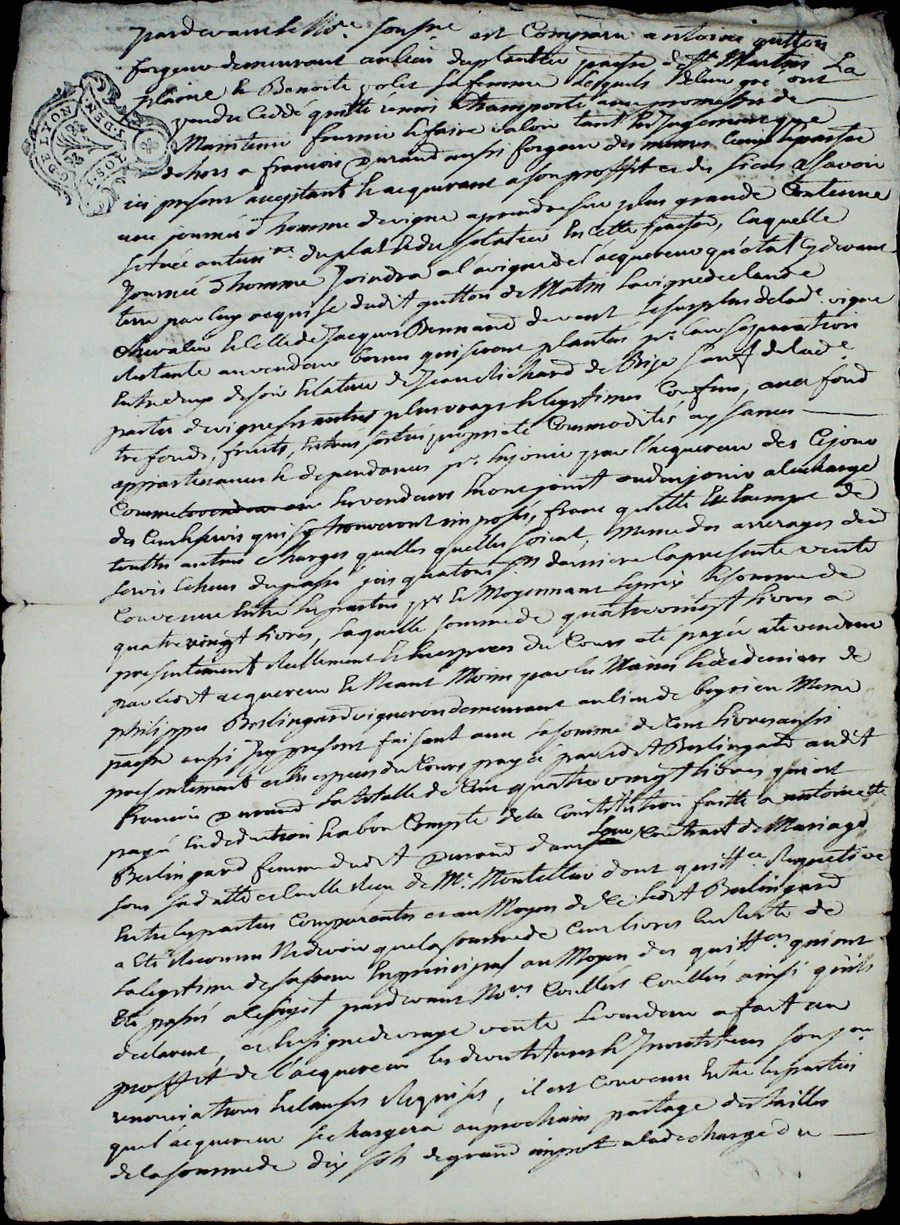 pardevant le No.re soussigné est comparu antoine guitton
forgeur demeurant au lieu du plantier paroisse de St Martin La
plaine & Benoite poles sa femme lesquels de leur gré ont
vendu ceddé quitté remis & transporté avec promesse de
Maintenir fournir & faire valoir tant en Jugement que
dehors a francois Durand aussi forgeur des mesmes lieu & paroisse
icy present acceptant & acquerant a son proffit et des siens a Scavoir
une journée d'homme de vigne a prendre sur plus grande Contenue
située au terr.re du plat & du solatier en cette paroisse, Laquelle
Journée d'homme Joindra a la vigne de l'acquereur qu'etait cy devant
terre par luy acquise dudit guitton de Matin la vigne de claude
chevalier & celle de Jacques Bonnard de vent le surplus de lad.e vigne
restante au vendeur bornes qui seront plantés p.r la separation
entre deux de soir & la terre de Jean Richard de Bize sauf de lad.e
partie de vigne ses autres plus vrays & legitimes Confins, avec fond
tres fonds, fruits, entrées sorties, proprieté Commodités aysances
appartenances & dependances p.r en jouir par l'acquereur des Cejour
Comme les vendeurs en ont jouit ou du jouir a la charge
des Cens & servis qui s'y trouveront imposés, franc quitte & exempt de
touttes autres charges quelles quelles soient, mesme des arrerages desd
servis echeus du passé jusqu'a la St Martin derniere la presente vente
Convenue entre les parties p.r & Moyennant le prix & somme de
quatre vingt livres, laquelle somme de quatre vingt livres a
presentement reellement & en especes du Cours eté payée aud vendeur
par ledit acquereur Le Neant Moins par les Mains & des deniers de
philippe Berlingard vigneron demeurant au lieu de beyrieu Meme
paroisse aussi Icy present faisant avec la somme de Cent livres aussi
presentement et en especes du Cours payée par ledit Berlingard audit
francois Durand la totalle de Cent quatre vingt livres qui est
payé en deduction & a bon Compte de la Constitution faitte a antoinette
Berlingard femme dudit Durand dans leur Contract de Mariage
sous sa datte et reçu de Me Montellier dont quitt.ce respective
entre les parties Comparentes et au Moyen de ce ledit Berlingard
a eté reconnu Ne devoir que la somme de Cent livres en reste de
la legitime de sa soeur en principal au Moyen des quitt.ces qui ont
eté passés a le sujet pardevant No.res ainsi qu'ils
declarent, et en signe de vraye vente Le vendeur a fait au
proffit de l'acquereur les devestitures & Investitures
renonciations & clauses Requises, il est convenu entre les parties
que l'acquereur se chargera au prochain partage des tailles
de la somme de dix sols de grand impot a la decharge du